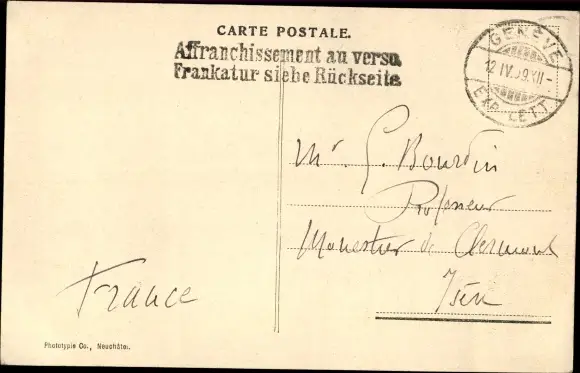 CARTE POSTALE.
Affranchissement au verso
Frankatur siehe Rückseite
GENÈVE
12 IV. 09. XII -
EXP. LETT.
Mr. G. Bourdin
Professeur
Monestier de Clermont
Isère
France
Phototypie Co., Neuchâtel.